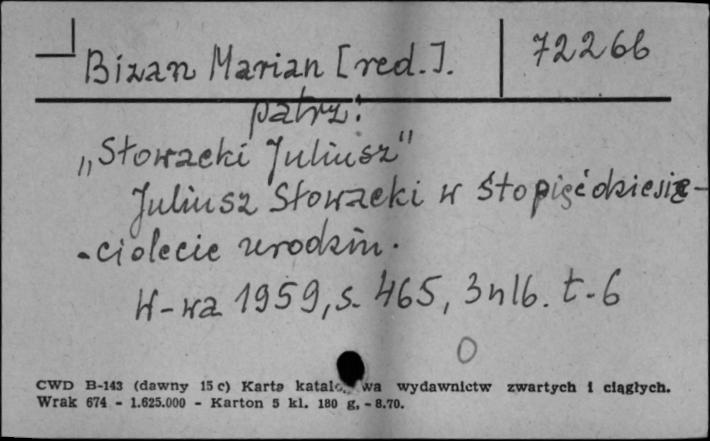 Bizan Marian [red.]. 72266
patrz:
„Słowacki Juliusz"
Juliusz Słowacki w stopięćdziesię-
-ciolecie urodzin.
W-wa 1959, s. 465, 3 nlb. t. 6
0
CWD B-143 (dawny 15 c) Karta wydawnictw zwartych i ciągłych.
Wrak 674 - 1.625.000 - Karton 5 kl. 180 g, - 8.70.